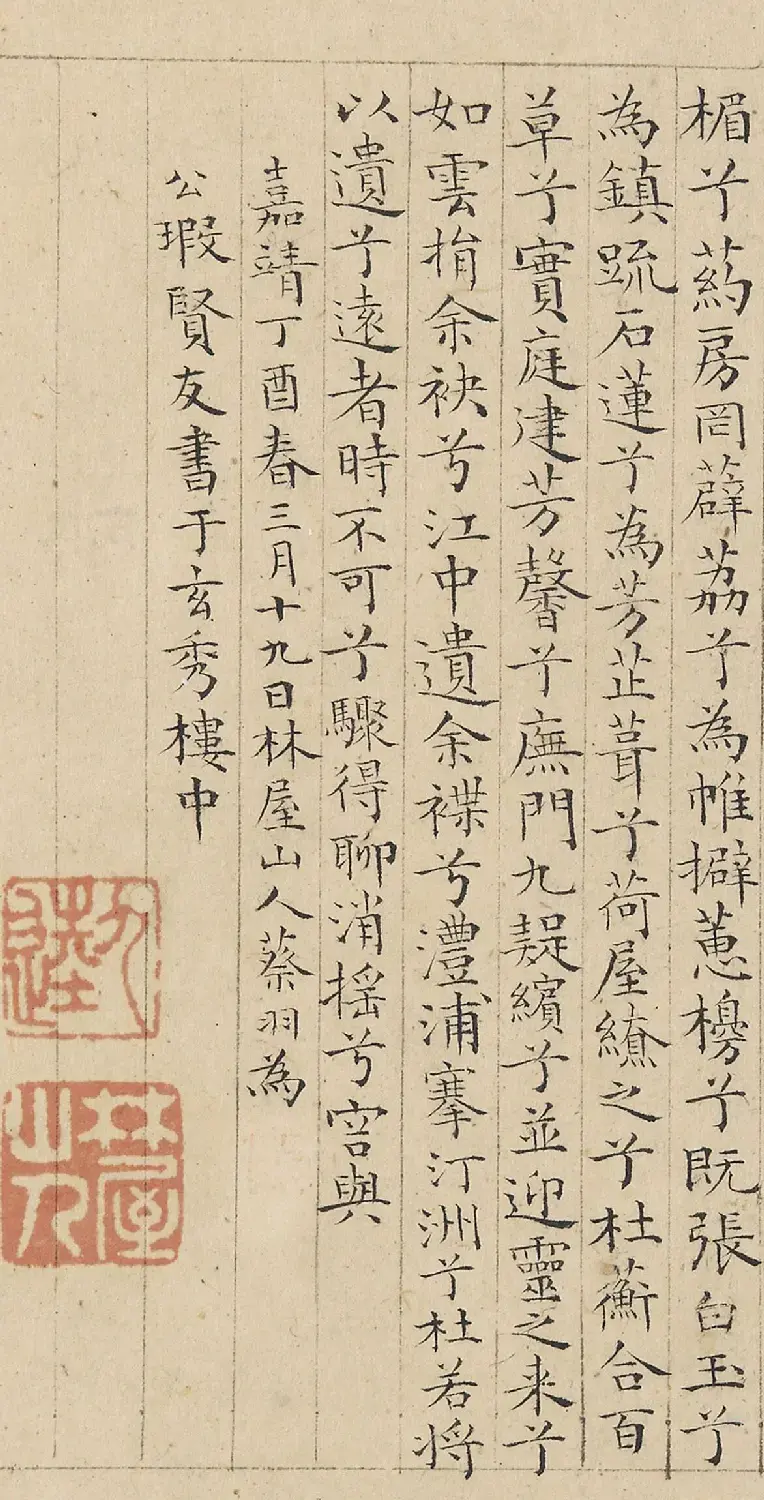 楣兮葯房罔薜荔兮為帷擗蕙櫋兮既張白玉兮
為鎮疏石蓮兮為芳芷葺兮荷屋繚之兮杜蘅合百
草兮實庭建芳馨兮廡門九疑繽兮並迎靈之来兮
如雲捐余袂兮江中遺余褋兮澧浦搴汀洲兮杜若将
以遺兮遠者時不可兮驟得聊消摇兮容與
嘉靖丁酉春三月十九日林屋山人蔡羽為
公瑕賢友書于玄秀樓中
九逵
林屋山人